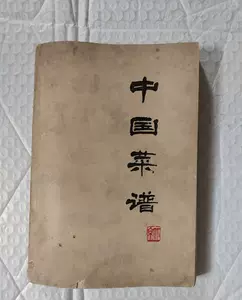 中国菜谱